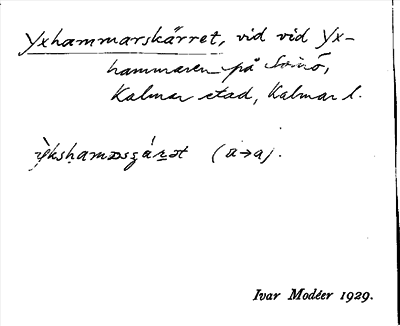 Yxhammarskärret, vid vid Yx-
hammaren på Svinö,
Kalmar stad, Kalmar l.
(a→a).
Ivar Modéer 1929.